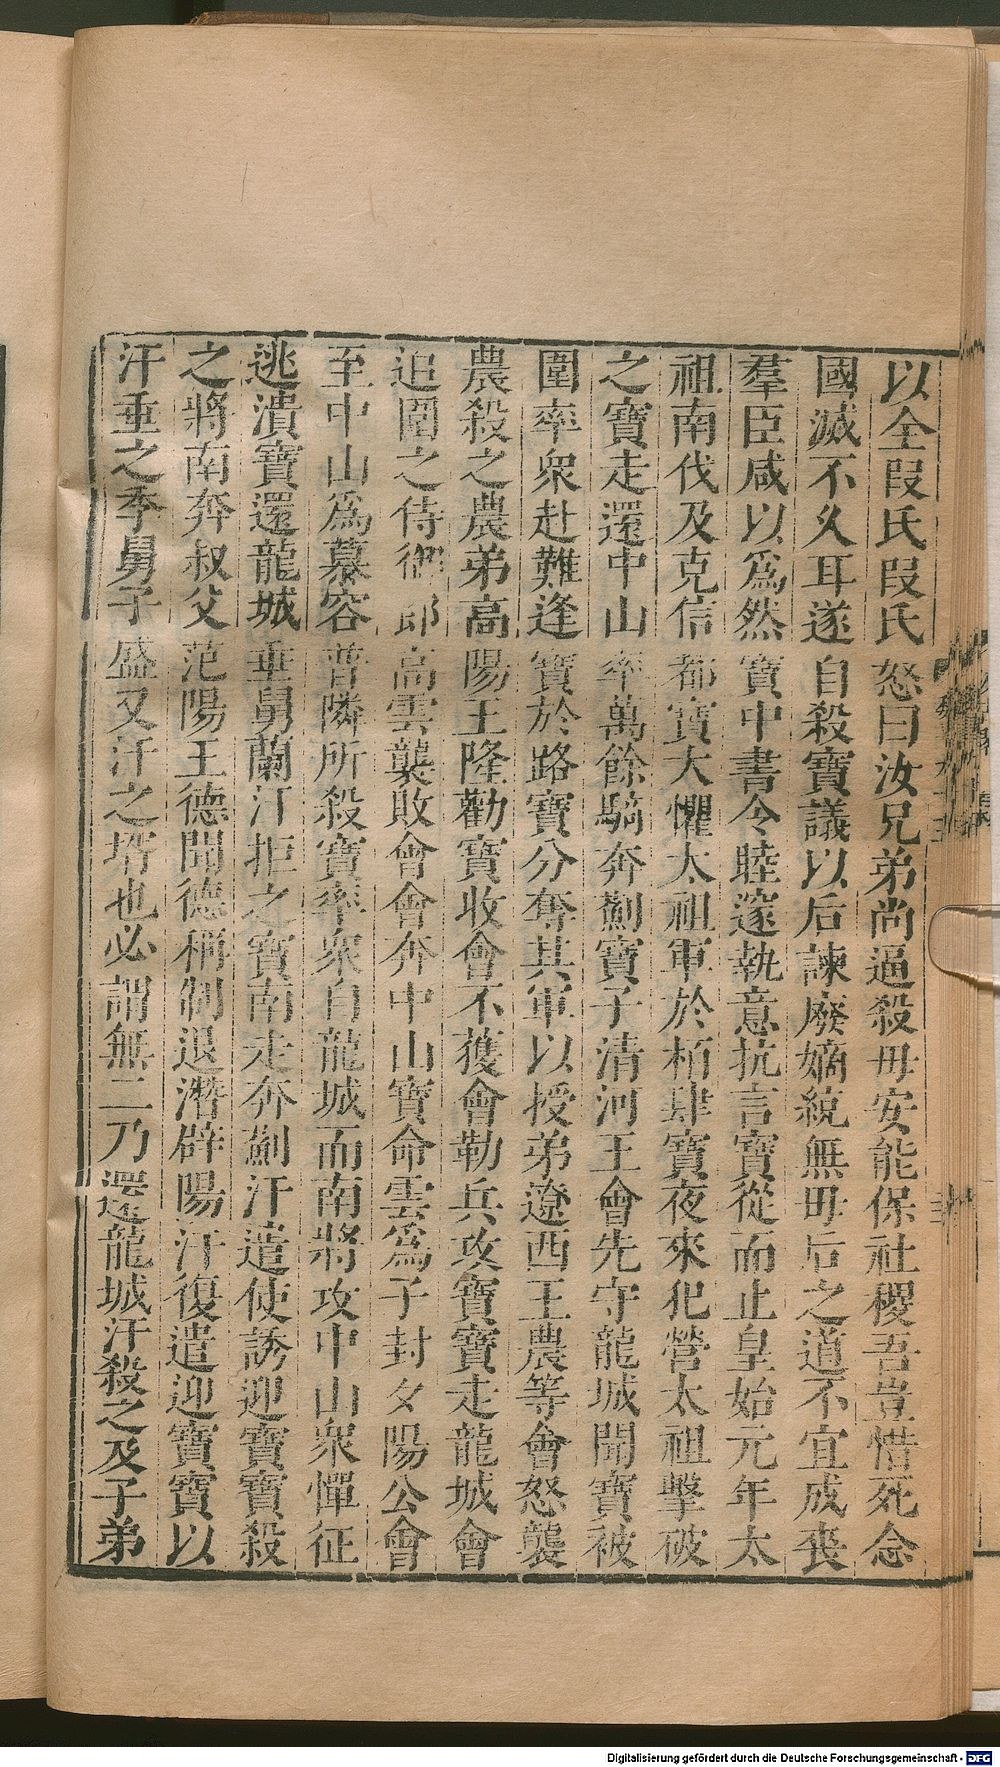 以全段氏段氏怒曰汝兄弟尚逼殺毋安能保社稷吾豈惜死念
國滅不久耳遂自殺寶議以后諫廢嫡統無毋后之道不宜成喪
羣臣咸以爲然寶中書令眭邃執意抗言寶從而止皇始元年太
祖南伐及克信都寶大懼太祖軍於栢肆寶夜來犯營太祖擊破
之寶走還中山率萬餘騎奔薊寶子清河王會先守龍城聞寶被
圍率衆赴難逢寶於路寶分奪其軍以授弟遼西王農等會怒襲
農殺之農弟高陽王隆勸寶收會不獲會勒兵攻寶寶走龍城會
追圍之侍御郎高雲襲敗會會奔中山寶命雲爲子封夕陽公會
至中山爲慕容普隣所殺寶率衆自龍城而南將攻中山衆憚征
逃潰寶還龍城垂舅蘭汗拒之寶南走奔薊汗遣使誘迎寶寶殺
之將南奔叔父范陽王德聞德稱制退潛辟陽汗復遣迎寶寶以
汗垂之季舅子盛又汗之壻也必謂無二乃還龍城汗殺之及子弟
Digitalisierung gefördert durch die Deutsche Forschungsgemeinschaft - DFG